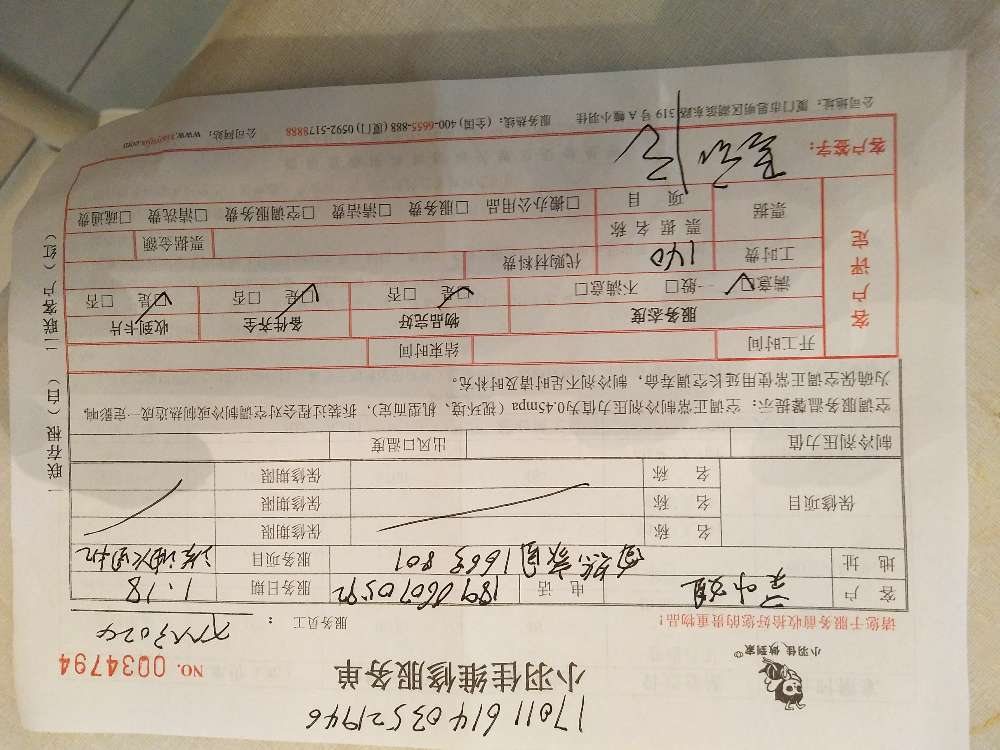 1701161403521946
小羽佳 做到家
小羽佳维修服务单
NO. 0034794
请您于服务前收拾好您的贵重物品!
服务员工: XM3024
客 户
电 话 189 0607 0592
服务日期 1.18
地 址 1663 801
服务项目 清洗油烟机
保修项目
名 称 保修期限
名 称 保修期限
名 称 保修期限
制冷剂压力值 出风口温度
空调服务温馨提示:空调正常制冷剂压力值为0.45mpa(视环境、机型而定),拆装过程会对空调制冷或制热造成一定影响,
为确保空调正常使用延长空调寿命,制冷剂不足时请及时补充。
开工时间 结束时间
客户评定
服务态度 物品完好 备件齐全 收到卡片
☑满意 □一般 □不满意 ☑是 □否 ☑是 □否 ☑是 □否
工时费 140 代购材料费
票据 票据名称 票据金额
项 目 □搬办公用品 □服务费 □清洁费 □空调服务费 □清洗费 □疏通费
客户签字:
公司地址:厦门市思明区湖滨东路319号A幢小羽佳 服务热线:(全国)400-6655-888 (厦门)0592-5178888 公司网站:www.xiaoyujia.com
一联存根(白) 二联客户(红)